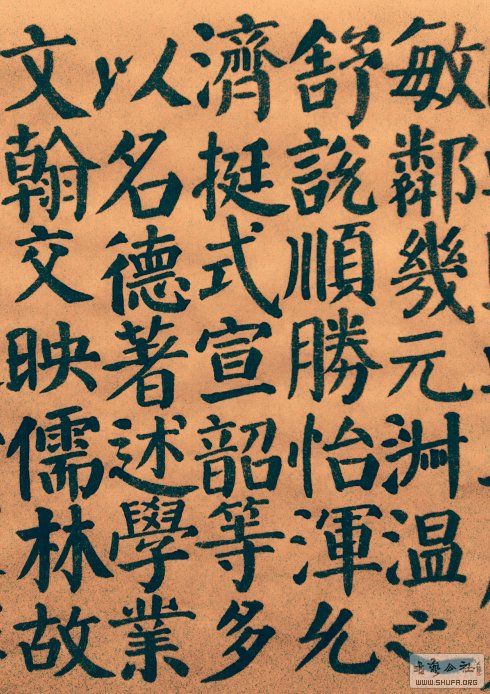 敏鄰幾元淵温之
舒說順勝怡渾允
濟挺式宣韶等多
以名德著述學業
文翰交映儒林故
書藝公社
WWW.SHUFA.ORG